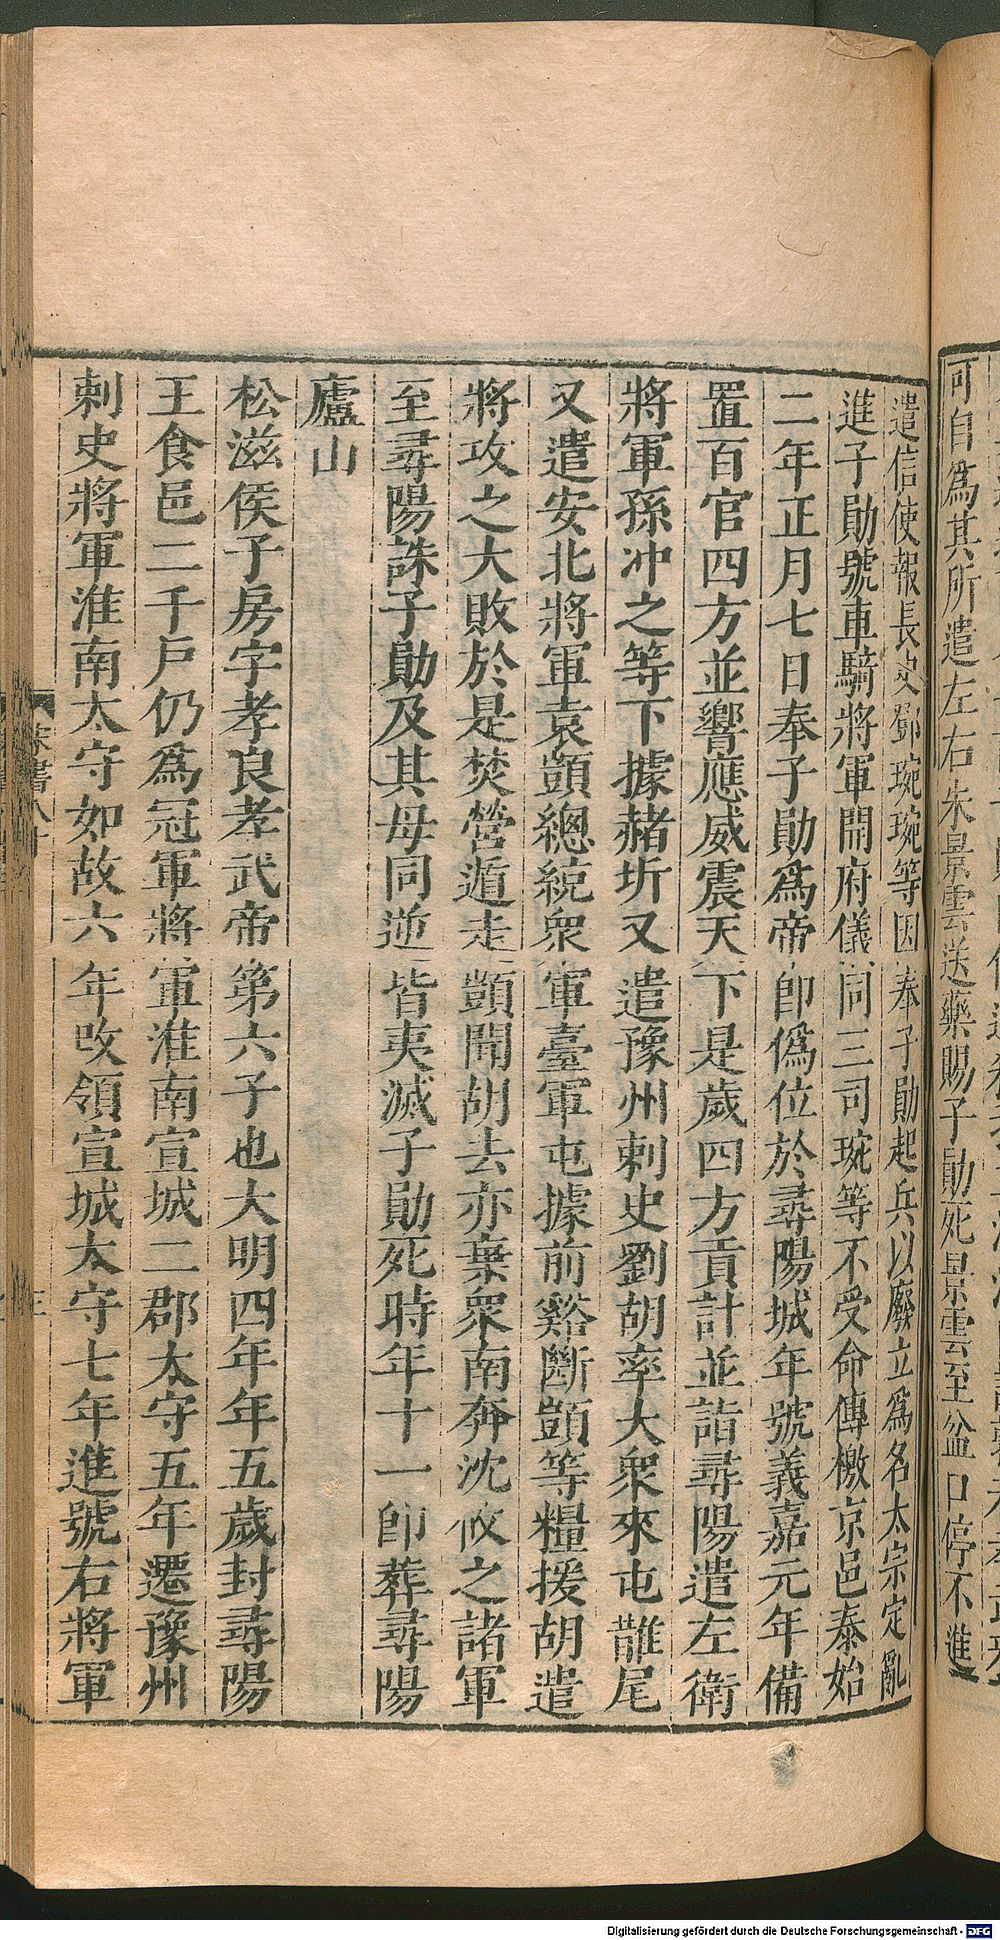 可自爲其所遣左右朱景雲送藥賜子勛死景雲至盆口停不進
遣信使報長史鄧琬琬等因奉子勛起兵以廢立爲名太宗定亂
進子勛號車騎將軍開府儀同三司琬等不受命傳檄京邑泰始
二年正月七日奉子勛爲帝即僞位於尋陽城年號義嘉元年備
置百官四方並響應威震天下是歲四方貢計並詣尋陽遣左衛
將軍孫冲之等下據赭圻又遣豫州刺史劉胡率大衆來屯鵲尾
又遣安北將軍袁顗總統衆軍臺軍屯據前谿斷顗等糧援胡遣
將攻之大敗於是焚營遁走顗聞胡去亦棄衆南奔沈攸之諸軍
至尋陽誅子勛及其母同逆皆夷滅子勛死時年十一即葬尋陽
廬山
松滋侯子房字孝良孝武帝第六子也大明四年年五歲封尋陽
王食邑二千戶仍爲冠軍將軍淮南宣城二郡太守五年遷豫州
刺史將軍淮南太守如故六年改領宣城太守七年進號右將軍
宋書八十
三
Digitalisierung gefördert durch die Deutsche Forschungsgemeinschaft - DFG